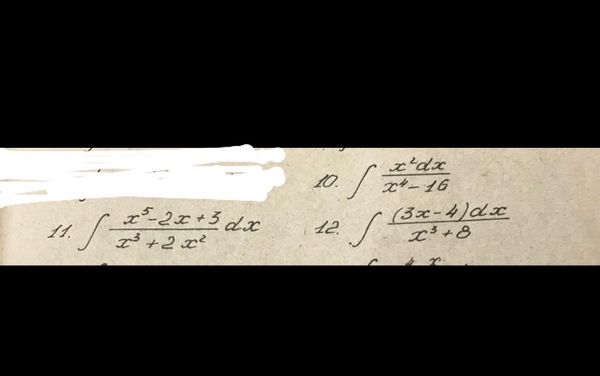 10. ∫ x²dx / x⁴ - 16
11. ∫ x⁵ - 2x + 3 / x³ + 2x² dx
12. ∫ (3x - 4)dx / x³ + 8